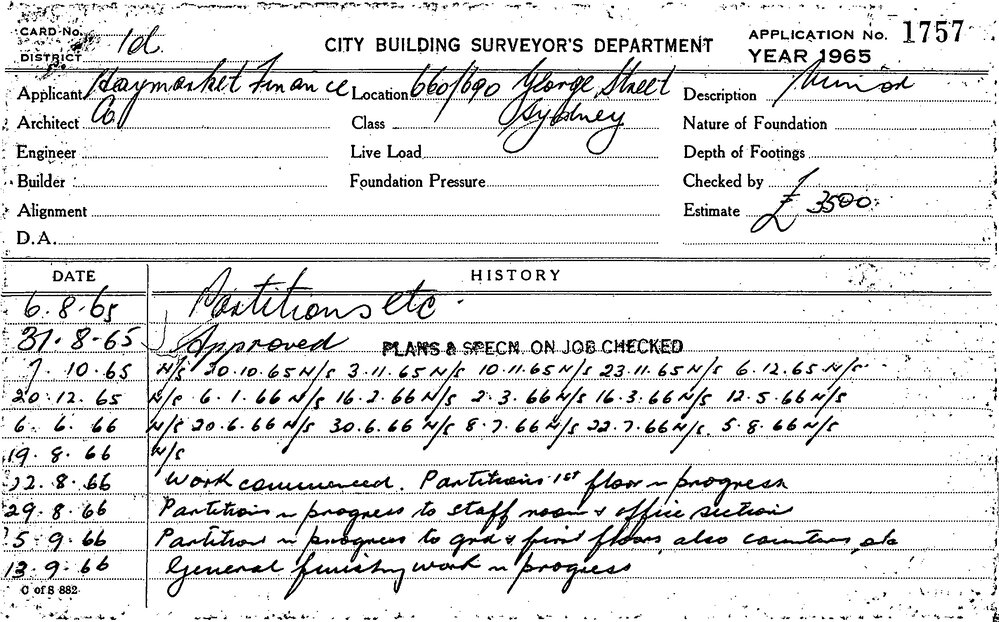 CARD No.
DISTRICT 1d
CITY BUILDING SURVEYOR'S DEPARTMENT
APPLICATION No. 1757
YEAR 1965
Applicant Haymarket Finance Co
Location 660/690 George Street Sydney
Description Minor
Architect
Class
Nature of Foundation
Engineer
Live Load
Depth of Footings
Builder
Foundation Pressure
Checked by
Alignment
Estimate £ 3500
D.A.
DATE HISTORY
6.8.65 Partitions etc.
31.8.65 Approved PLANS & SPECN. ON JOB CHECKED
7.10.65 N/S 20.10.65 N/S 3.11.65 N/S 10.11.65 N/S 23.11.65 N/S 6.12.65 N/S
20.12.65 N/S 6.1.66 N/S 16.2.66 N/S 2.3.66 N/S 16.3.66 N/S 12.5.66 N/S
6.6.66 N/S 20.6.66 N/S 30.6.66 N/S 8.7.66 N/S 22.7.66 N/S. 5.8.66 N/S
19.8.66 N/S
22.8.66 Work commenced. Partitions 1st floor in progress
29.8.66 Partitions in progress to staff room & office section
5.9.66 Partition in progress to grd & first floors, also counters, etc
13.9.66 General finishing work in progress
C of S 882